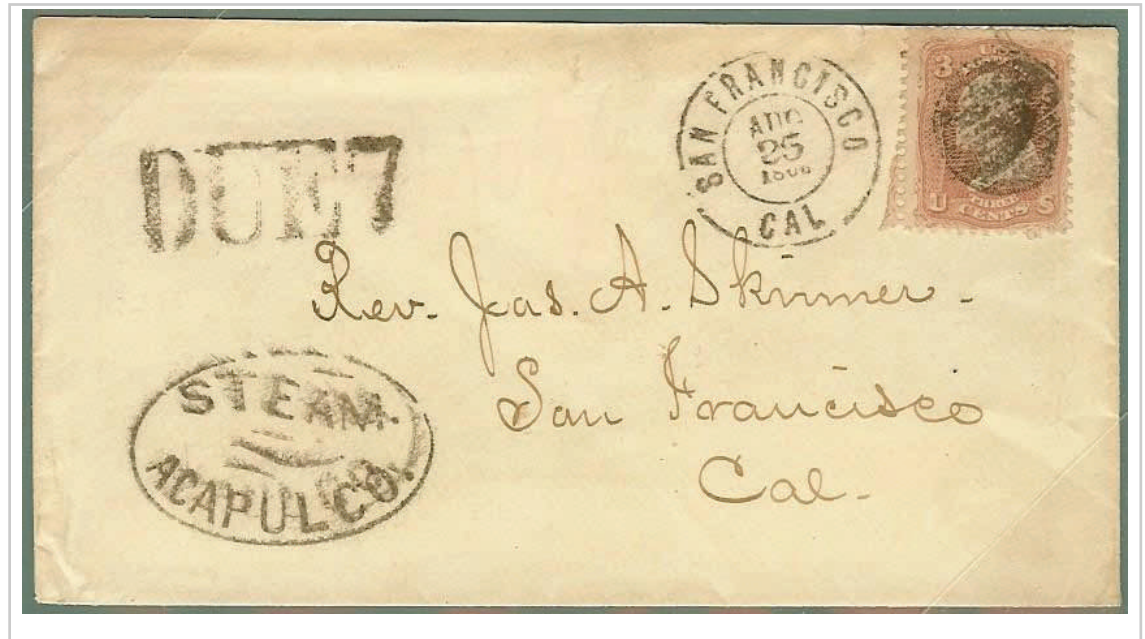 SAN FRANCISCO
AUG
25
CAL
3 U.S.
U THREE S
CENTS
DUE 7
Rev. Jas. A. Skinner.
San Francisco
Cal.
STEAM.
ACAPULCO.